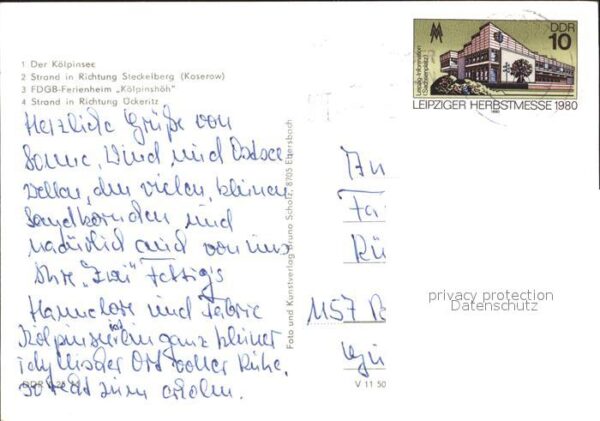 1 Der Kölpinsee
2 Strand in Richtung Steckelberg (Koserow)
3 FDGB-Ferienheim „Kölpinshöh"
4 Strand in Richtung Ückeritz
DDR
10
Leipzig-Information
(Sachsenplatz)
LEIPZIGER HERBSTMESSE 1980
1980
Herzliche Grüße von
Sonne, Wind und Ostsee
wellen, den vielen, kleinen
Sandkörnchen und
natürlich auch von uns
Ihre "Zwei" Fettig's
Hannelore und
Kölpinsee ist ein ganz kleiner
idyllischer Ort voller Ruhe,
so recht zum erholen.
Foto und Kunstverlag Bruno Scholz, 8705 Ebersbach
An
Fa
Rü
1157
privacy protection
Datenschutz
DDR
V 11 50